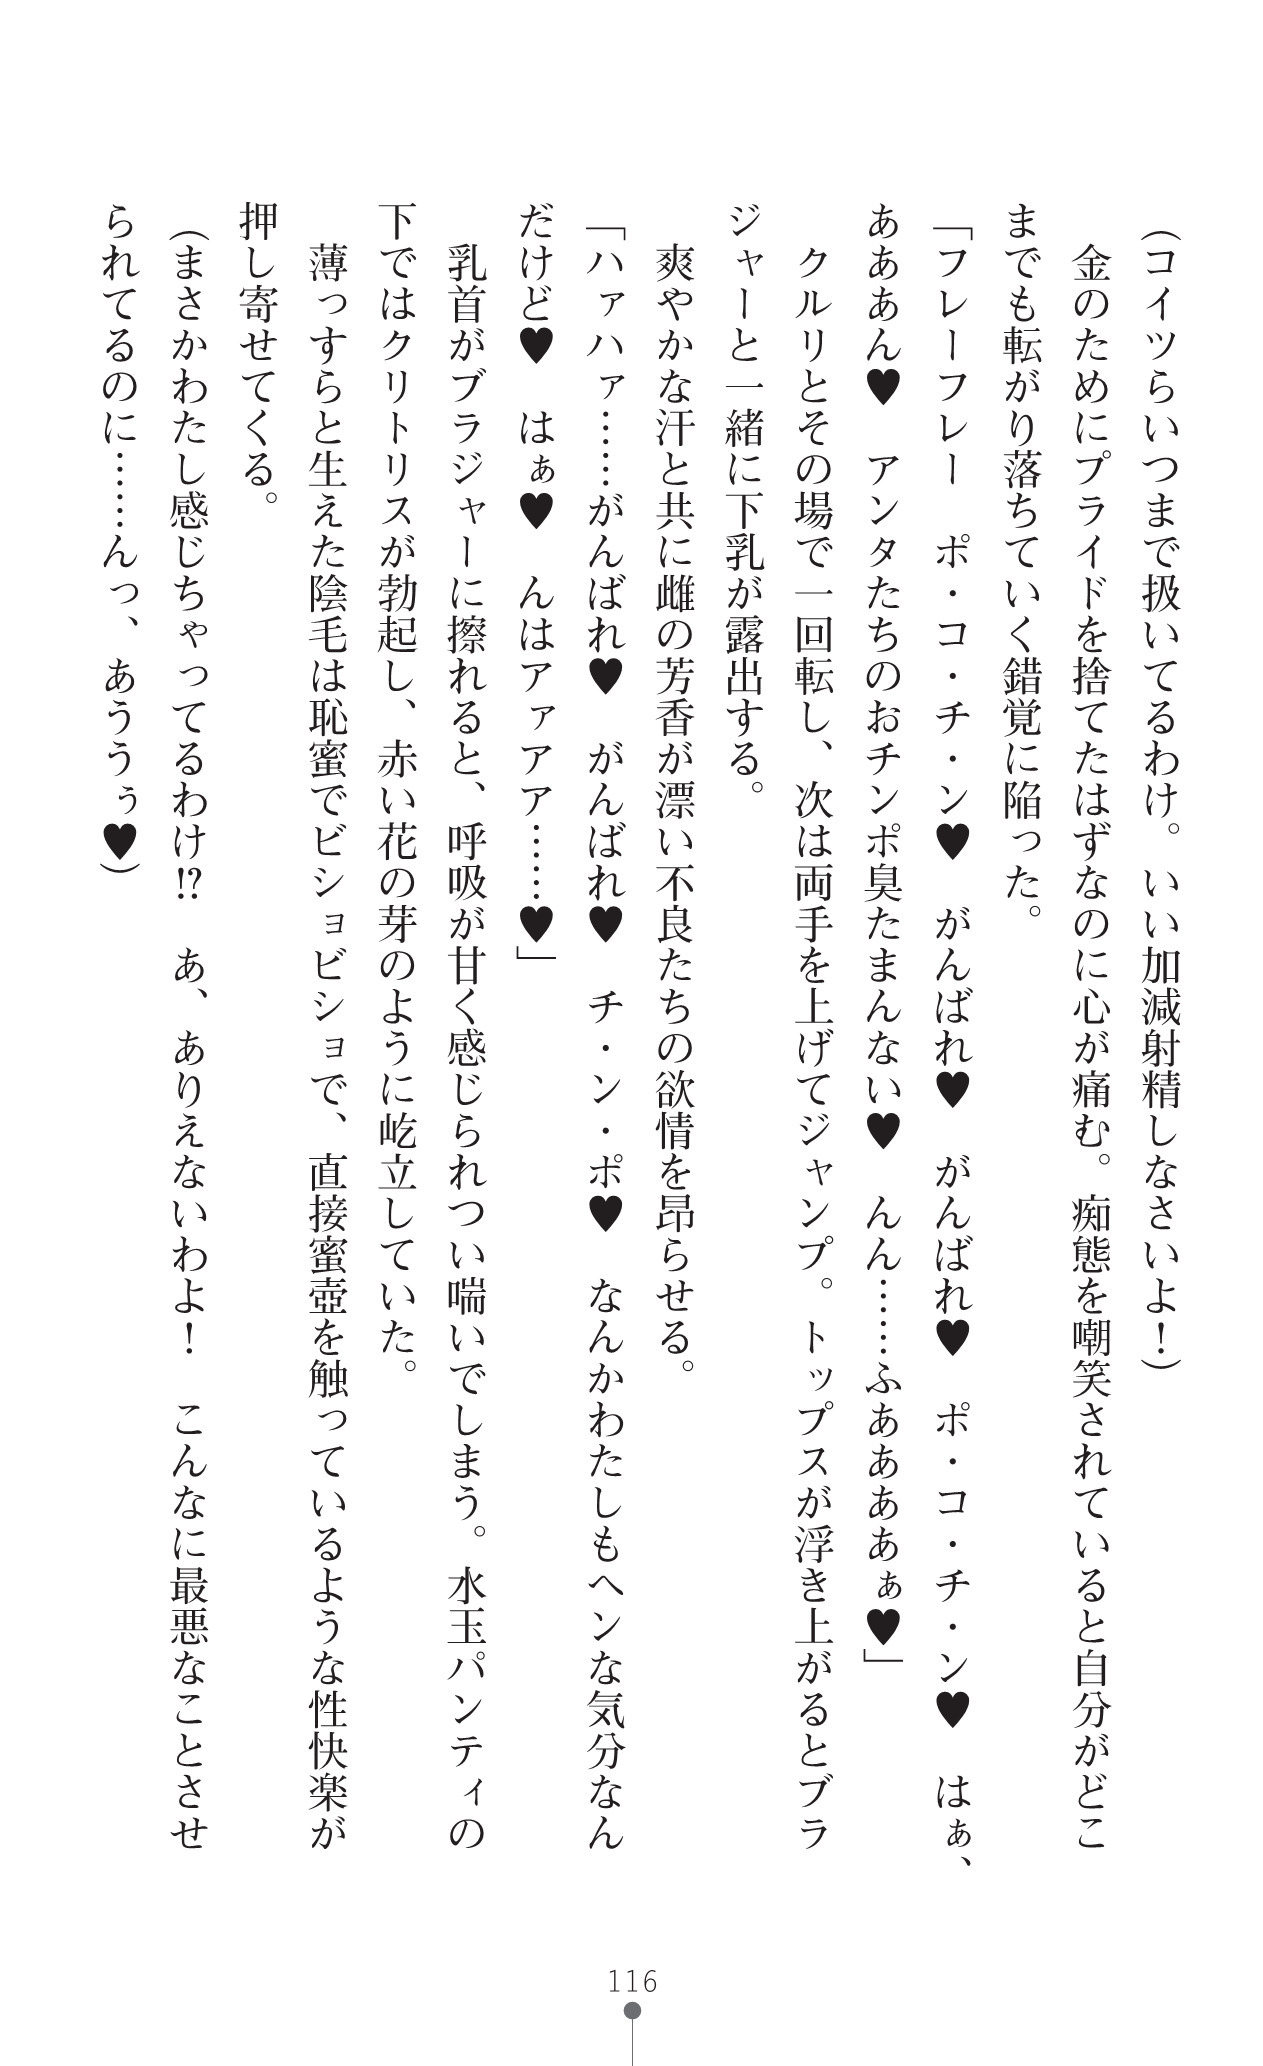 （コイツらいつまで扱いてるわけ。いい加減射精しなさいよ！）
　金のためにプライドを捨てたはずなのに心が痛む。痴態を嘲笑されていると自分がどこ
までも転がり落ちていく錯覚に陥った。
「フレーフレー　ポ・コ・チ・ン♥　がんばれ♥　がんばれ♥　ポ・コ・チ・ン♥　はぁ、
あああん♥　アンタたちのおチンポ臭たまんない♥　んん……ふああああぁ♥」
　クルリとその場で一回転し、次は両手を上げてジャンプ。トップスが浮き上がるとブラ
ジャーと一緒に下乳が露出する。
　爽やかな汗と共に雌の芳香が漂い不良たちの欲情を昂らせる。
「ハァハァ……がんばれ♥　がんばれ♥　チ・ン・ポ♥　なんかわたしもヘンな気分なん
だけど♥　はぁ♥　んはアァアア……♥」
　乳首がブラジャーに擦れると、呼吸が甘く感じられつい喘いでしまう。水玉パンティの
下ではクリトリスが勃起し、赤い花の芽のように屹立していた。
　薄っすらと生えた陰毛は恥蜜でビショビショで、直接蜜壺を触っているような性快楽が
押し寄せてくる。
（まさかわたし感じちゃってるわけ!?　あ、ありえないわよ！　こんなに最悪なことさせ
られてるのに……んっ、あううぅ♥）
116